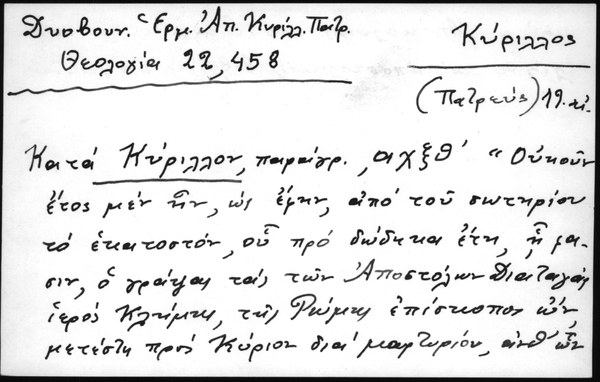 Δυοβουν. Ἑρμ. Ἀπ. Κυρίλλ. Πατρ.
Θεολογία 22, 458
Κύριλλος
(Πατρεύς) 19. αἰ.
Κατά Κύριλλον, παράγρ., αχξθ´ "Οὐκοῦν
ἔτος μέν ἦν, ὡς ἔφην, ἀπό τοῦ σωτηρίου
τό ἑκατοστόν, οὗ πρό δώδεκα ἔτη, ᾗ φα-
σιν, ὁ γράψας τάς τῶν Ἀποστόλων Διαταγάς
ἱερός Κλήμης, τῆς Ρώμης ἐπίσκοπος ὤν,
μετέστη πρός Κύριον διά μαρτυρίου, ἀνθ' ὧν